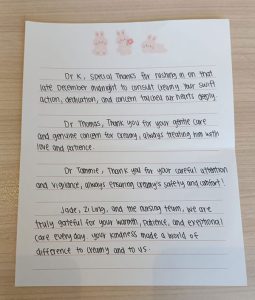 Dr K, special thanks for rushing in on that
late December midnight to consult Creamy. Your swift
action, dedication, and concern touched our hearts deeply.
Dr Thomas, Thank you for your gentle care
and genuine concern for Creamy, always treating him with
love and patience.
Dr Tammie, Thank you for your careful attention
and vigilance, always ensuring Creamy's safety and comfort!
Jade, Zi Ling, and the nursing team, we are
truly grateful for your warmth, patience, and exceptional
care everyday. Your kindness made a world of
difference to Creamy and to us.